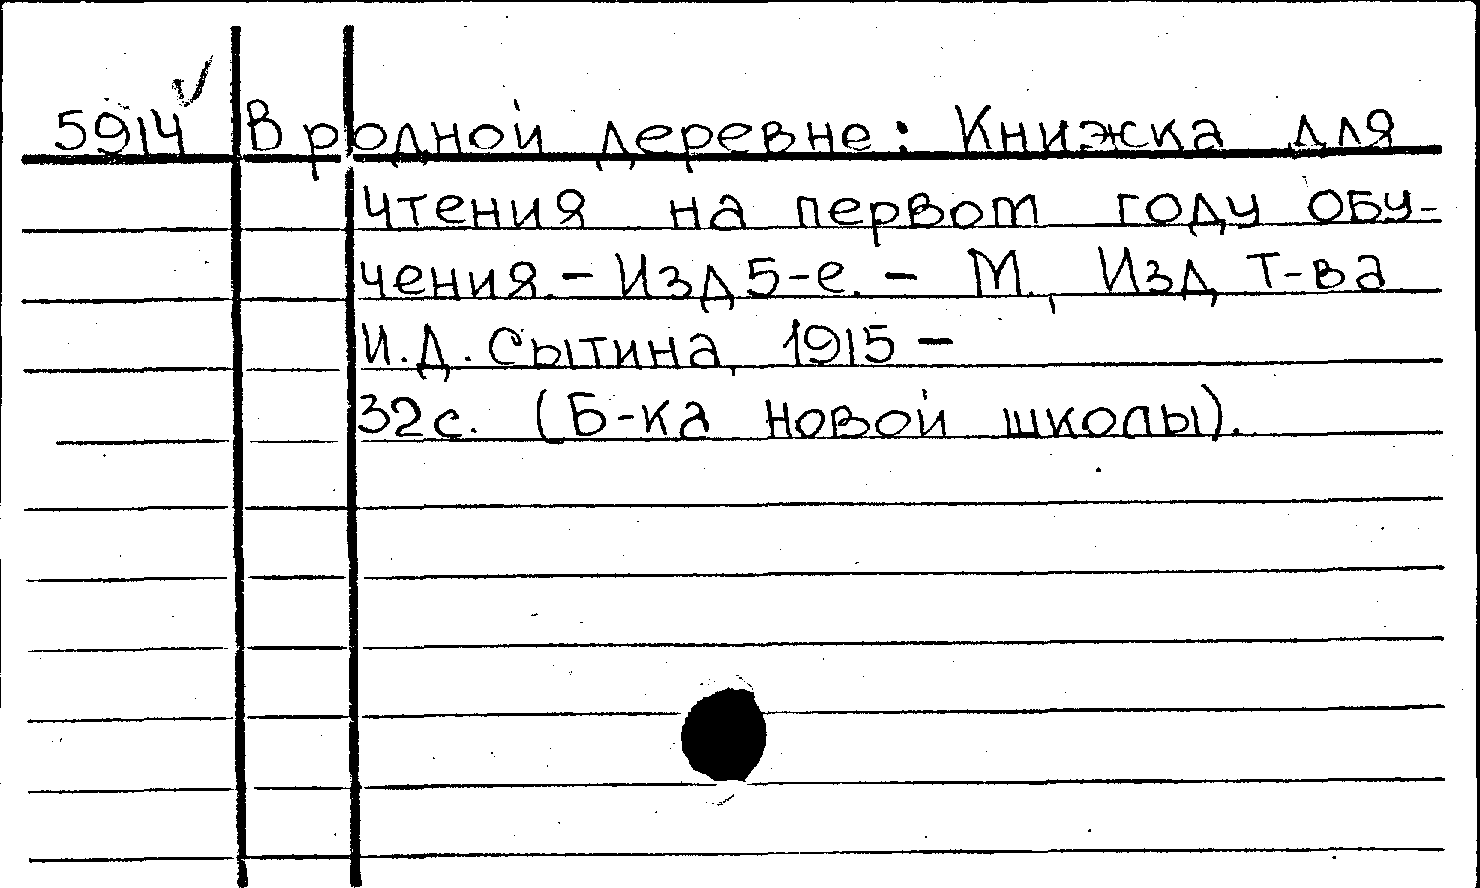 5914 В родной деревне: Книжка для
чтения на первом году обу-
чения. - Изд 5-е. - М., Изд. Т-ва
И.Д. Сытина, 1915 -
32с. (Б-ка новой школы).